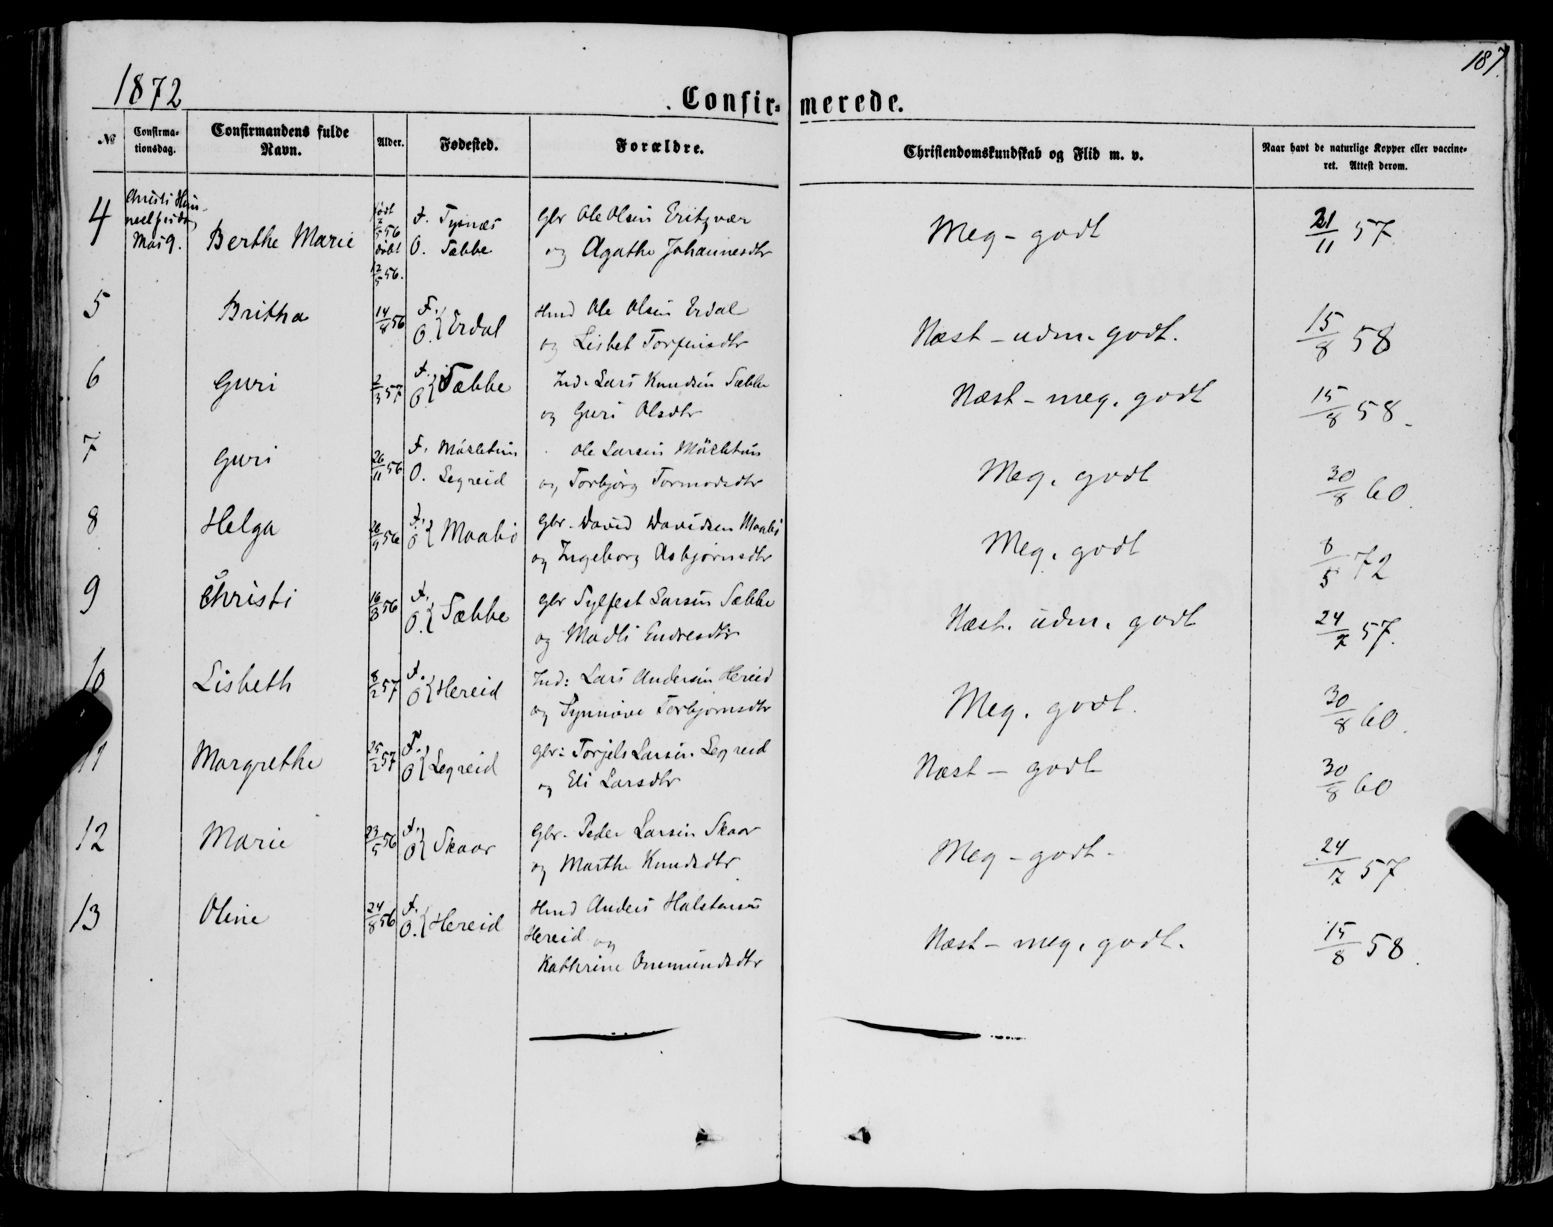 187.
1872
Confir- merede.
№ Confirma-tionsdag. Confirmandens fulde Navn. Alder. Fødested. Forældre. Christendomskundskab og Flid m. v. Naar havt de naturlige Kopper eller vaccine-ret. Attest derom.
4 Christi Him-melfartsdag Mai 9. Berthe Marie født 2/5 56 døbt 12/5 56. F. Tysnæs O. Sæbbe Gbr Ole Olsen Eritzvær og Agathe Johannesdtr Meg - godt 21/11 57
5 Britha 14/8 56 F. O. { Erdal Hmd Ole Olsen Erdal og Lisbet Torfinsdtr Næst - udm. godt. 15/8 58
6 Guri 2/3 57 F. O. { Sæbbe Ind. Lars Knudsen Sæbbe og Guri Olsdtr Næst - meg. godt 15/8 58.
7 Guri 26/11 56 F. O. Legreid Ole Larsen og Torbjørg Tormodsdtr Meg. godt 30/8 60.
8 Helga 26/9 56 F. O { Maabø Gbr. David Davidsen Maabø og Ingeborg Asbjørnsdtr Meg. godt 8/5 72
9 Christi 16/3 56 F. O. { Sæbbe Gbr Sylfest Larsen Sæbbe og Madli Endresdtr Næst. udm. godt 24/7 57.
10 Lisbeth 8/2 57 F. O { Hereid Ind: Lars Andersen Hereid og Synnøve Torbjørnsdtr Meg. godt. 30/8 60.
11 Margrethe 25/2 57 F. O { Legreid Gbr: Torjels Larsen Legreid og Eli Larsdtr Næst - godt 30/8 60
12 Marie 23/5 56 F. O { Skaar Gbr. Peder Larsen Skaar og Marthe Knudsdtr Meg - godt - 24/7 57
13 Oline 24/8 56 F. O. { Hereid Hmd Anders Halstensen Hereid og Kathrine Onemundsdtr Næst - meg. godt. 15/8 58.